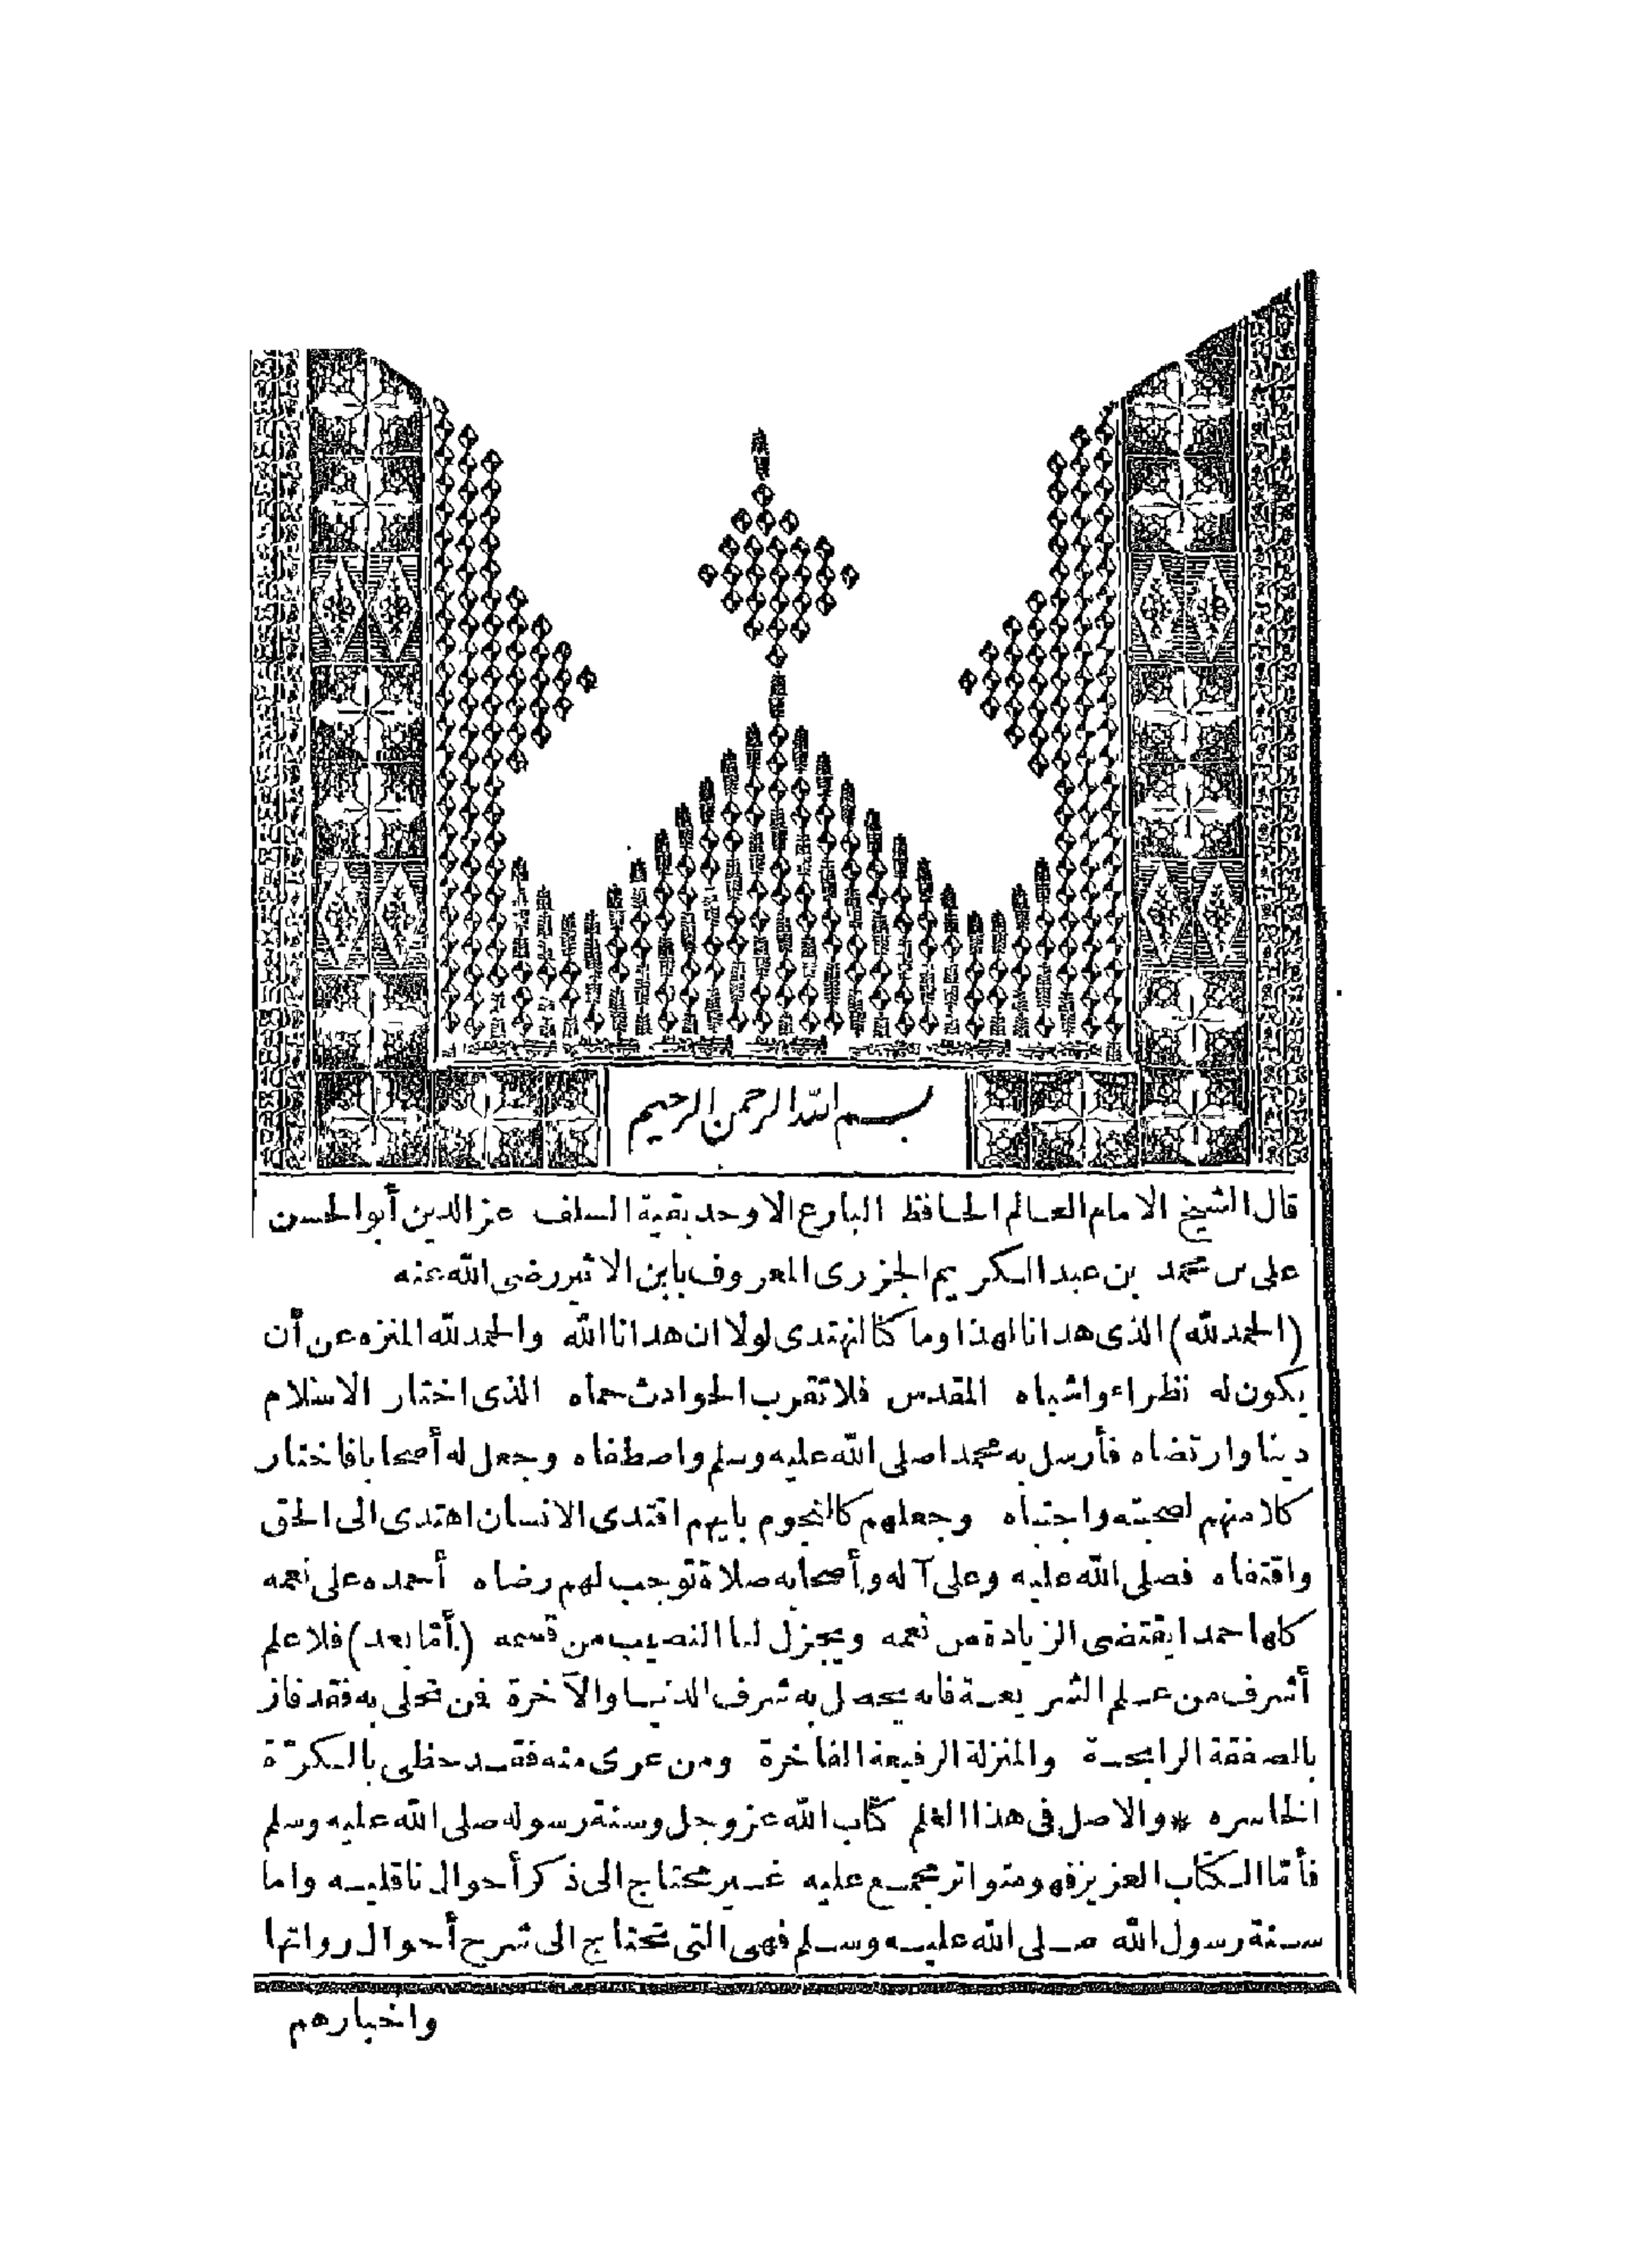 بسم الله الرحمن الرحيم
قال الشيخ الامام العالم الحافظ البارع الاوحد بقية السلف عز الدين أبو الحسن
على بن محمد بن عبد الكريم الجزرى المعروف بابن الاثير رضى الله عنه
(الحمد لله) الذى هدانا لهذا وما كنا لنهتدى لولا ان هدانا الله والحمد لله المنزه عن أن
يكون له نظراء واشباه المقدس فلا تقرب الحوادث حماه الذى اختار الاسلام
دينا وارتضاه فأرسل به محمدا صلى الله عليه وسلم واصطفاه وجعل له أصحابا فاختار
كلا منهم لصحبته واجتباه وجعلهم كالنجوم بايهم اقتدى الانسان اهتدى الى الحق
واقتفاه فصلى الله عليه وعلى آله وأصحابه صلاة توجب لهم رضاه أحمده على نعمه
كلها حمدا يقتضى الزيادة من نعمه ويجزل لنا النصيب من قسمه (أمّا بعد) فلا علم
أشرف من علم الشريعة فانه يحصل به شرف الدنيا والآخرة فمن تحلى به فقد فاز
بالصفقة الرابحة والمنزلة الرفيعة الفاخرة ومن عرى منه فقد حظى بالكرّة
الخاسره * والاصل فى هذا العلم كتاب الله عز وجل وسنة رسوله صلى الله عليه وسلم
فأمّا الكتاب العزيز فهو متواتر مجمع عليه غير محتاج الى ذكر أحوال ناقليه واما
سنة رسول الله صلى الله عليه وسلم فهى التى تحتاج الى شرح أحوال رواتها
واخبارهم